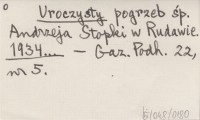 Uroczysty pogrzeb śp.
Andrzeja Stopki w Rudawie.
1934... — Gaz. Podh. 22,
nr 5.